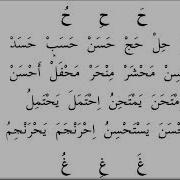 حَ حِ حُ
حِلْ حَجْ حَسَنْ حَسَبْ حَسَدْ
سِنْ مَحْشَرْ مِنْحَرْ مَحْفَلْ أَحْسَنْ
مْتَحَنَ يَمْتَحِنُ اِحْتَمَلَ يَحْتَمِلُ
حْسَنَ يَسْتَحْسِنُ اِحْرَنْجَمَ يَحْرَنْجِمُ
غَ غِ غُ